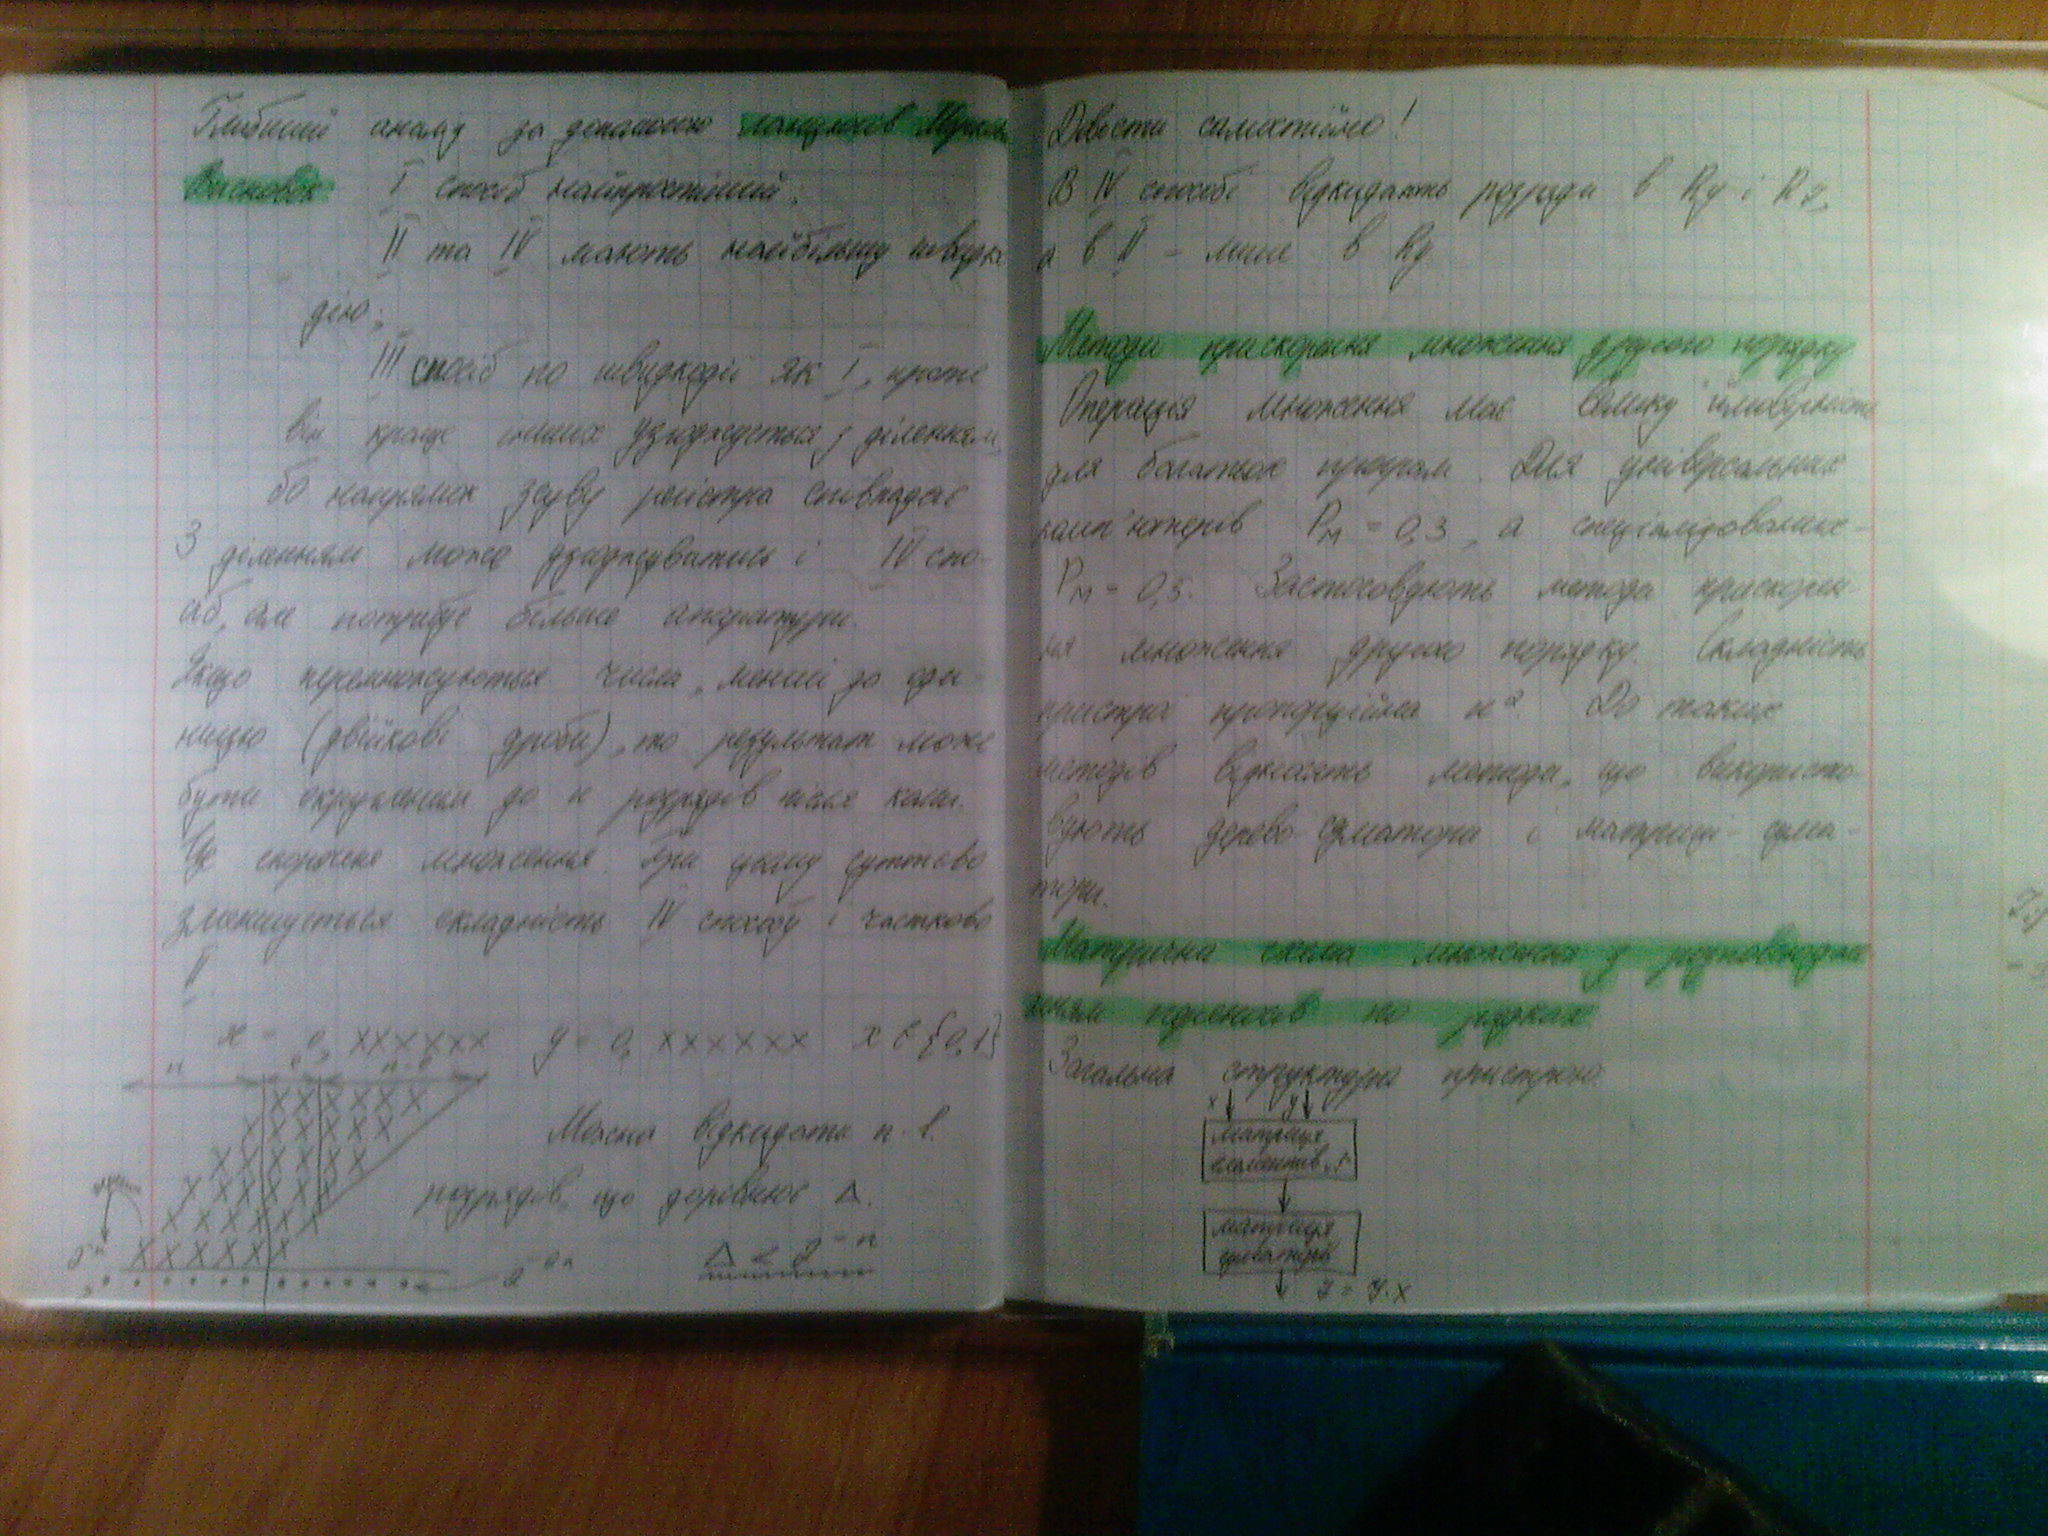 Глибший аналіз за допомогою ланцюгів Маркова
Висновок I спосіб найпростіший;
II та IV мають найбільшу швидко
дію;
III спосіб по швидкодії як I, проте
він краще інших узгоджується з діленням,
бо напрямок зсуву регістра співпадає
З діленням може узгоджуватись і IV спо-
сіб, але потребує більше апаратури.
Якщо перемножуються числа, менші за оди-
ницю (двійкові дроби), то результат може
бути округлений до n розрядів після коми.
Це скорочене множення. При цьому суттєво
зменшується складність IV способу і частково
II.
x = 0, xxxxxx y = 0, xxxxxx x ∈ {0,1}
n
xxxxxx
xxxxxx
xxxxxx
xxxxxx
xxxxxx
xxxxxx
Можна відкидати n-l
розрядів, що дорівнює Δ.
Δ < 2⁻ⁿ
Довести самостійно!
В IV способі відкидають розряди в Ry і Rz,
а в II - лише в Ry
Методи прискорення множення другого порядку
Операція множення має велику ймовірність
для багатьох програм. Для універсальних
комп'ютерів Pм = 0,3, а спеціалізованих -
Pм = 0,5. Застосовують методи прискорен-
ня множення другого порядку. Складність
пристрої пропорційна n². До таких
методів відносять методи, що використо-
вують дерево суматори і матриці-сума-
тори.
Матрична схема множення з розповсюдже
нням переносів по рядках
Загальна структура пристрою.
x y
матриця
елементів "І"
матриця
суматорів
Z = Y·X